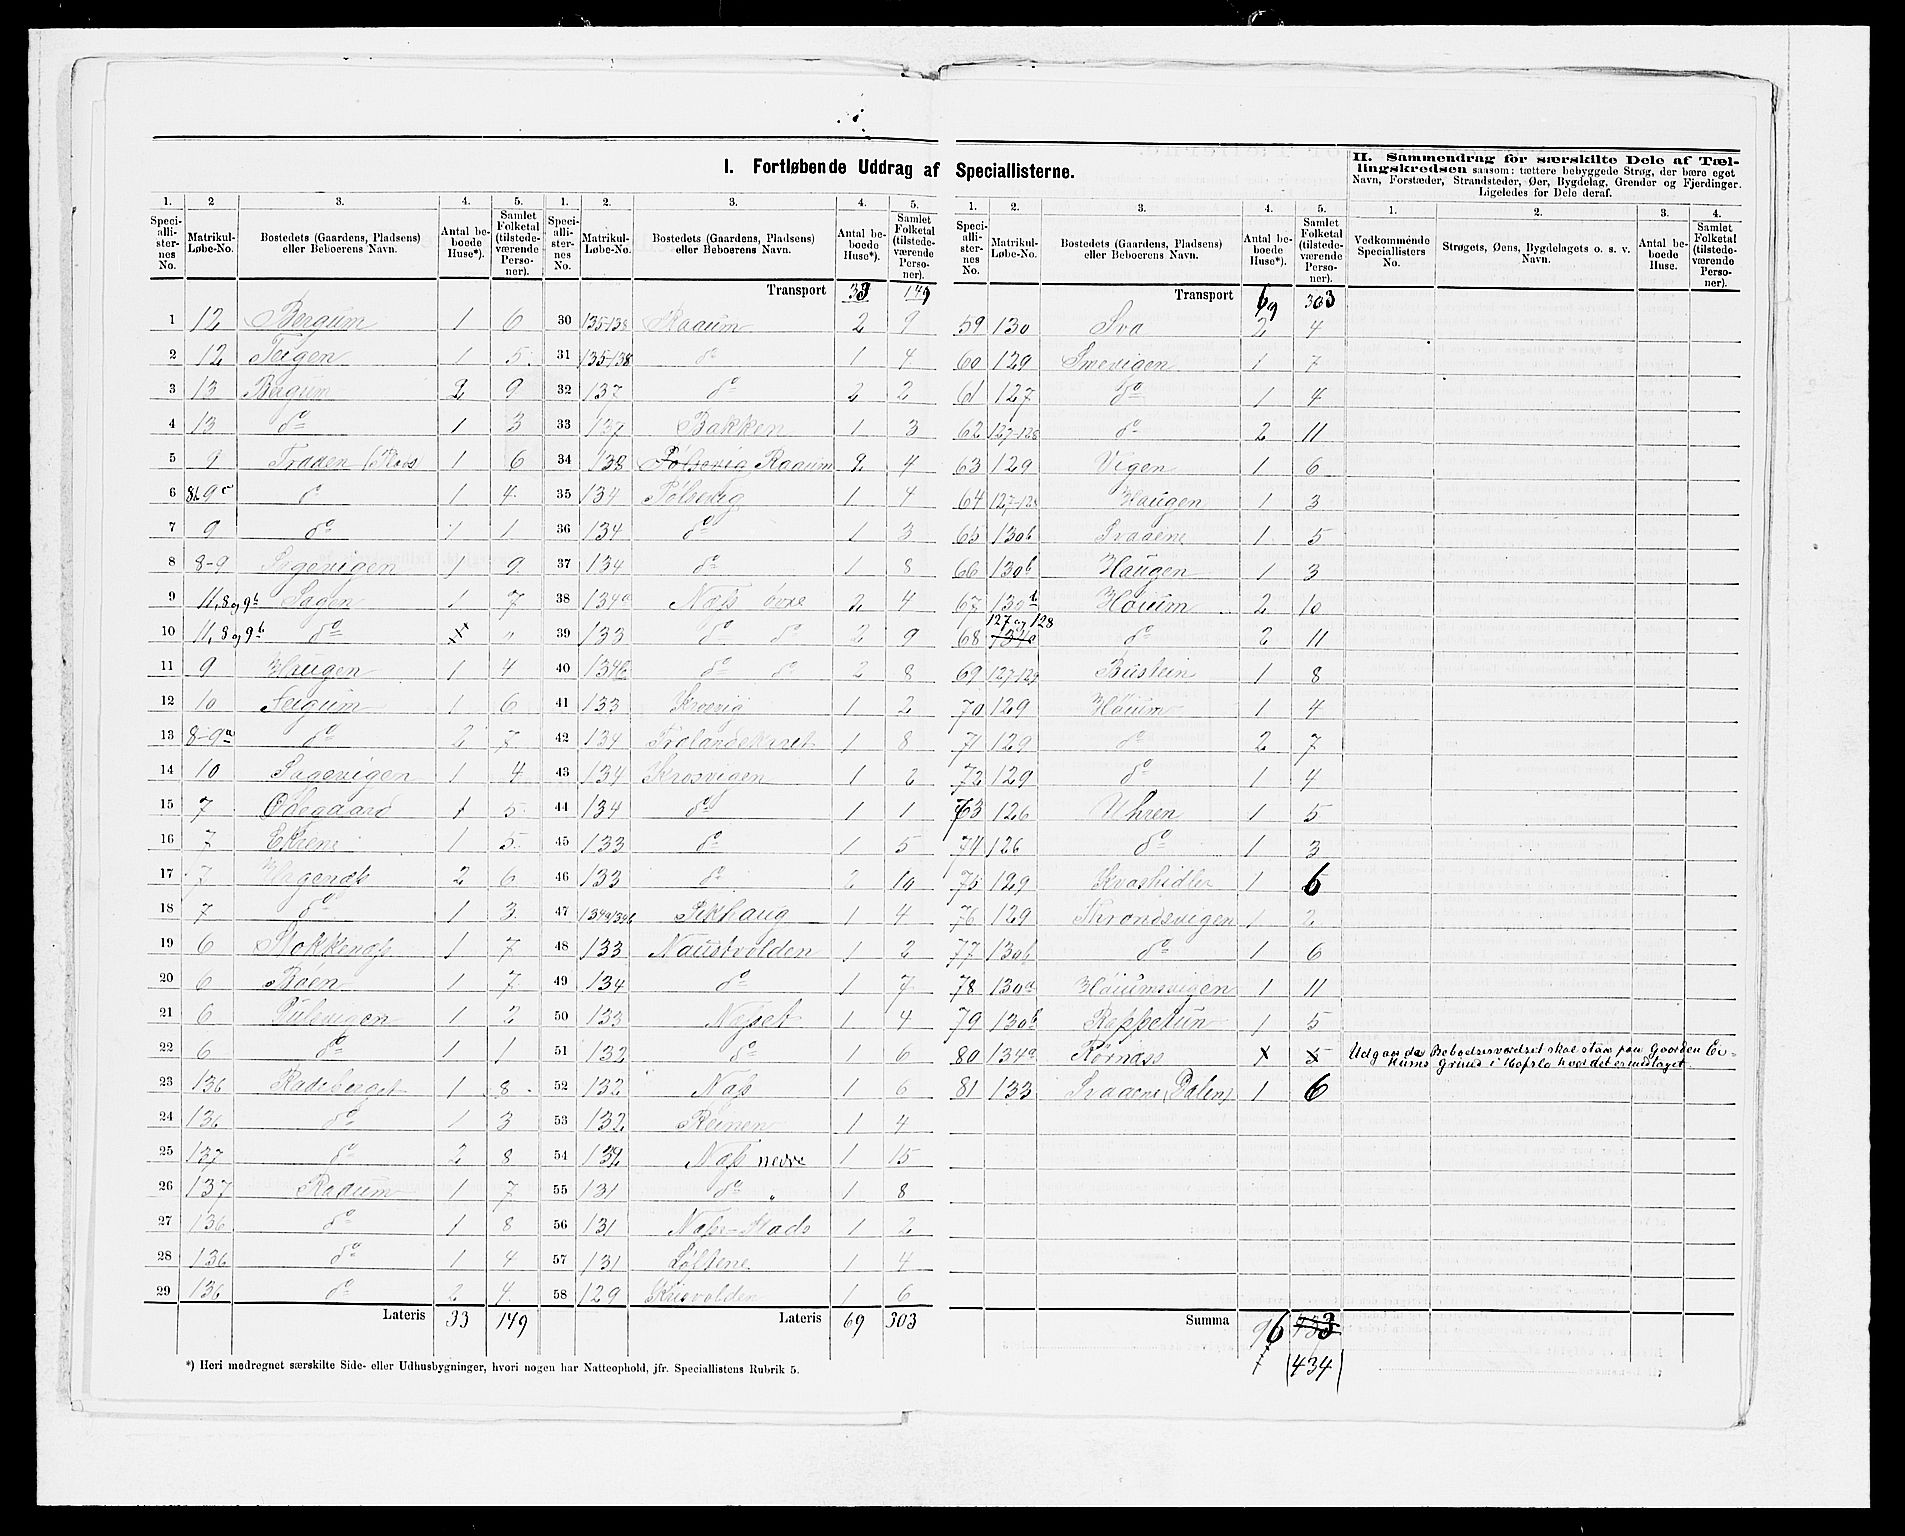 I. Fortløbende Uddrag af Speciallisterne.
II. Sammendrag for særskilte Dele af Tællingskredsen saasom: tættere bebyggede Strøg, der bære eget
Navn, Forstæder, Strandsteder, Øer, Bygdelag, Grender og Fjerdinger.
Ligeledes for Dele deraf.
1. 2 3. 4. 5. 1. 2. 3. 4. 5. 1. 2. 3. 4. 5. 1. 2. 3. 4.
Speciallisternes No. Matrikul-Løbe-No. Bostedets (Gaardens, Pladsens) eller Beboerens Navn. Antal beboede Huse*). Samlet Folketal (tilstedeværende Personer).
Speciallisternes No. Matrikul-Løbe-No. Bostedets (Gaardens, Pladsens) eller Beboerens Navn. Antal beboede Huse*). Samlet Folketal (tilstedeværende Personer).
Speciallisternes No. Matrikul-Løbe-No. Bostedets (Gaardens, Pladsens) eller Beboerens Navn. Antal beboede Huse*). Samlet Folketal (tilstedeværende Personer).
Vedkommende Speciallisters No. Strøgets, Øens, Bygdelagets o. s. v. Navn. Antal beboede Huse. Samlet Folketal (tilstedeværende Personer).
1 12 Bergum 1 6
2 12 Teigen 1 5
3 13 Bergum 2 9
4 13 do 1 3
5 9 Traaen 1 6
6 9c do 1 4
7 9 do 1 1
8 8-9 Sagevigen 1 9
9 11, 8 og 9b Sagen 1 7
10 11, 8 og 9b do "
11 9 Haugen 1 4
12 10 Seigum 1 6
13 8-9a do 2 7
14 10 Sagevigen 1 4
15 7 Ødegaard 1 5
16 7 Ekrene 1 5
17 7 Hagenæs 2 6
18 7 do 1 3
19 6 Stokkenæs 1 7
20 6 Boen 1 7
21 6 1 2
22 6 do 1 1
23 136 Radeberget 1 8
24 136 do 1 3
25 137 do 2 8
26 137 Raaum 1 7
27 136 do 1 8
28 136 do 1 4
29 136 do 2 4
Lateris 33 149
Transport 33 149
30 135-138 Raaum 2 9
31 135-138 do 1 4
32 137 do 2 2
33 137 Bakken 1 3
34 138 Raaum 2 4
35 134 Pølsevig 1 4
36 134 do 1 3
37 134 do 1 8
38 134a Næs øvre 2 4
39 133 do do 2 9
40 134b do do 2 8
41 133 Krosvig 1 2
42 134 1 8
43 134 Krosvigen 1 2
44 134 do 1 1
45 133 do 1 5
46 133 do 2 10
47 134a 134b Pikhaug 1 4
48 133 Naustvolden 1 2
49 134 do 1 7
50 133 Næset 1 4
51 132 do 1 6
52 132 Næs 1 6
53 132 Reinen 1 4
54 132 Næs nedre 1 15
55 131 do " 1 8
56 131 1 2
57 131 Løftene 1 4
58 129 Krisvolden 1 6
Lateris 69 303
Transport 69 303
59 130 Sva 2 4
60 129 Smevigen 1 7
61 127 do 1 4
62 127-128 do 2 11
63 129 Vigen 1 6
64 127-128 Haugen 1 3
65 130b Svaaene 1 5
66 130b Haugen 1 3
67 130b Høium 2 10
68 127 og 128 do 2 11
69 127-129 Bustein 1 8
70 129 Høium 1 4
71 129 do 2 7
72 129 do 1 4
73 126 Uhren 1 5
74 126 do 1 3
75 129 Kvashidler 1 6
76 129 Throndsvigen 1 2
77 130b do 1 6
78 130a Høiumsvigen 1 11
79 130b Reppetun 1 5
80 134a Rørnæs x 5 Udgaar da Beboelseshuset skal staa paa Gaarden
Grund i hvor det er indtaget.
81 133 Svaaene (Dalen) 1 6
Summa 96 433
(434)
*) Heri medregnet særskilte Side- eller Udhusbygninger, hvori nogen har Natteophold, jfr. Speciallistens Rubrik 5.